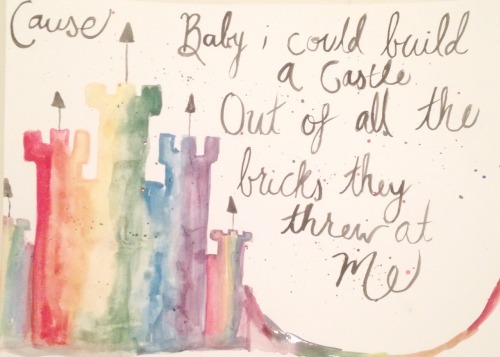 Cause
Baby i could build
a Castle
Out of all the
bricks they
threw at
Me